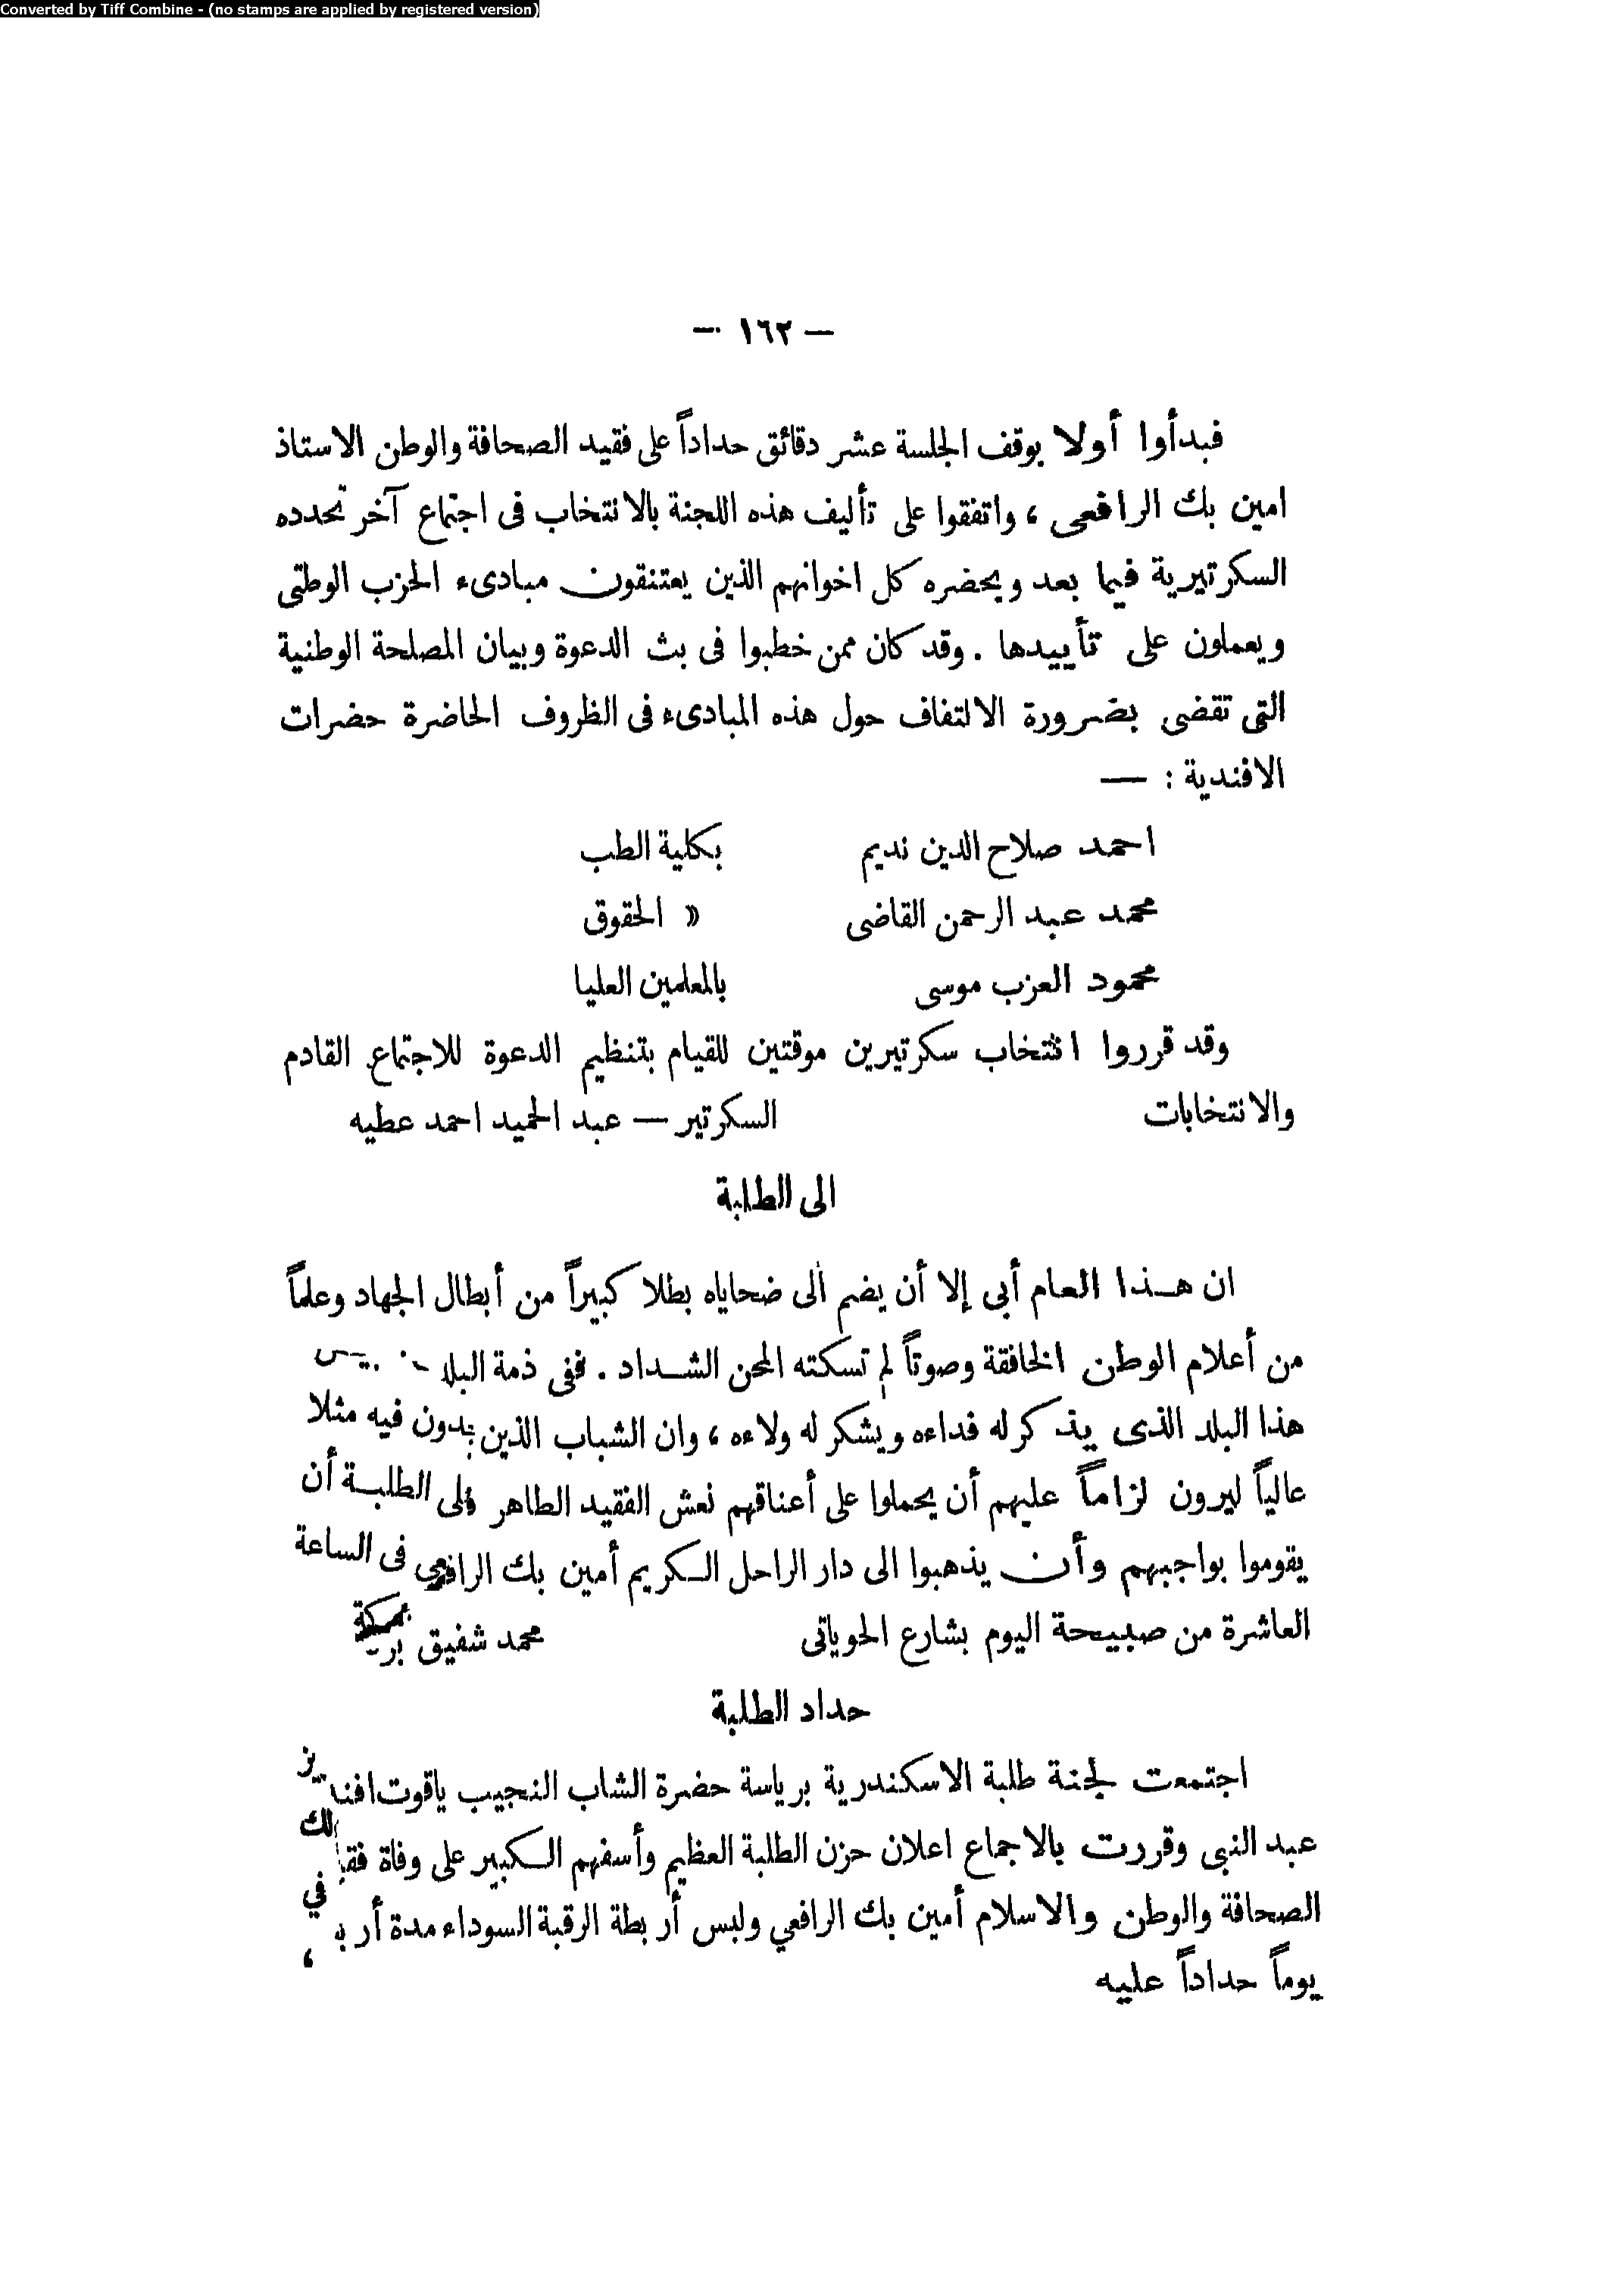 Converted by Tiff Combine - (no stamps are applied by registered version)
— ١٦٢ —
فبدأوا أولا بوقف الجلسة عشر دقائق حداداً على فقيد الصحافة والوطن الاستاذ
امين بك الرافعى ، واتفقوا على تأليف هذه اللجنة بالانتخاب فى اجتماع آخر تحدده
السكرتيرية فيما بعد ويحضره كل اخوانهم الذين يعتنقون مبادىء الحزب الوطنى
ويعملون على تأييدها . وقد كان ممن خطبوا فى بث الدعوة وبيان المصلحة الوطنية
التى تقضى بضرورة الالتفاف حول هذه المبادىء فى الظروف الحاضرة حضرات
الافندية : —
احمد صلاح الدين نديم بكلية الطب
محمد عبد الرحمن القاضى » الحقوق
محمود العزب موسى بالمعلمين العليا
وقد قرروا انتخاب سكرتيرين موقتين للقيام بتنظيم الدعوة للاجتماع القادم
والانتخابات السكرتير — عبد الحميد احمد عطيه
الى الطلبة
ان هذا العام أبى إلا أن يضم الى ضحاياه بطلا كبيراً من أبطال الجهاد وعلماً
من أعلام الوطن الخافقة وصوتاً لم تسكته المحن الشداد . ففى ذمة
هذا البلد الذى يذكر له فداءه ويشكر له ولاءه ، وان الشباب الذين فيه مثلا
عالياً ليرون لزاماً عليهم أن يحملوا على أعناقهم نعش الفقيد الطاهر الطلبة أن
يقوموا بواجبهم وأن يذهبوا الى دار الراحل الكريم أمين بك الرافعى فى الساعة
العاشرة من صبيحة اليوم بشارع الحوياتى محمد شفيق
حداد الطلبة
اجتمعت لجنة طلبة الاسكندرية برياسة حضرة الشاب النجيب ياقوت
عبد النبى وقررت بالاجماع اعلان حزن الطلبة العظيم وأسفهم الكبير على وفاة
الصحافة والوطن والاسلام أمين بك الرافعي ولبس أربطة الرقبة السوداء مدة
يوماً حداداً عليه